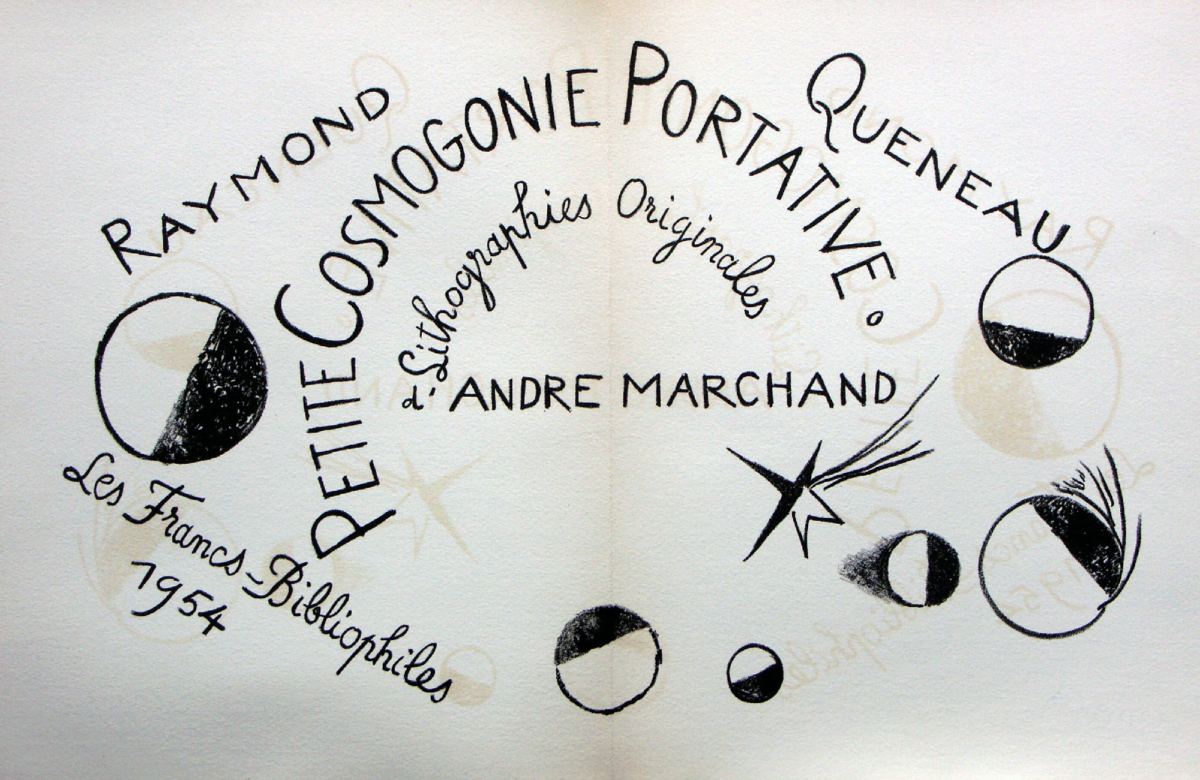 RAYMOND QUENEAU
PETITE COSMOGONIE PORTATIVE.
d'Lithographies Originales
ANDRE MARCHAND
Les Francs-Bibliophiles
1954